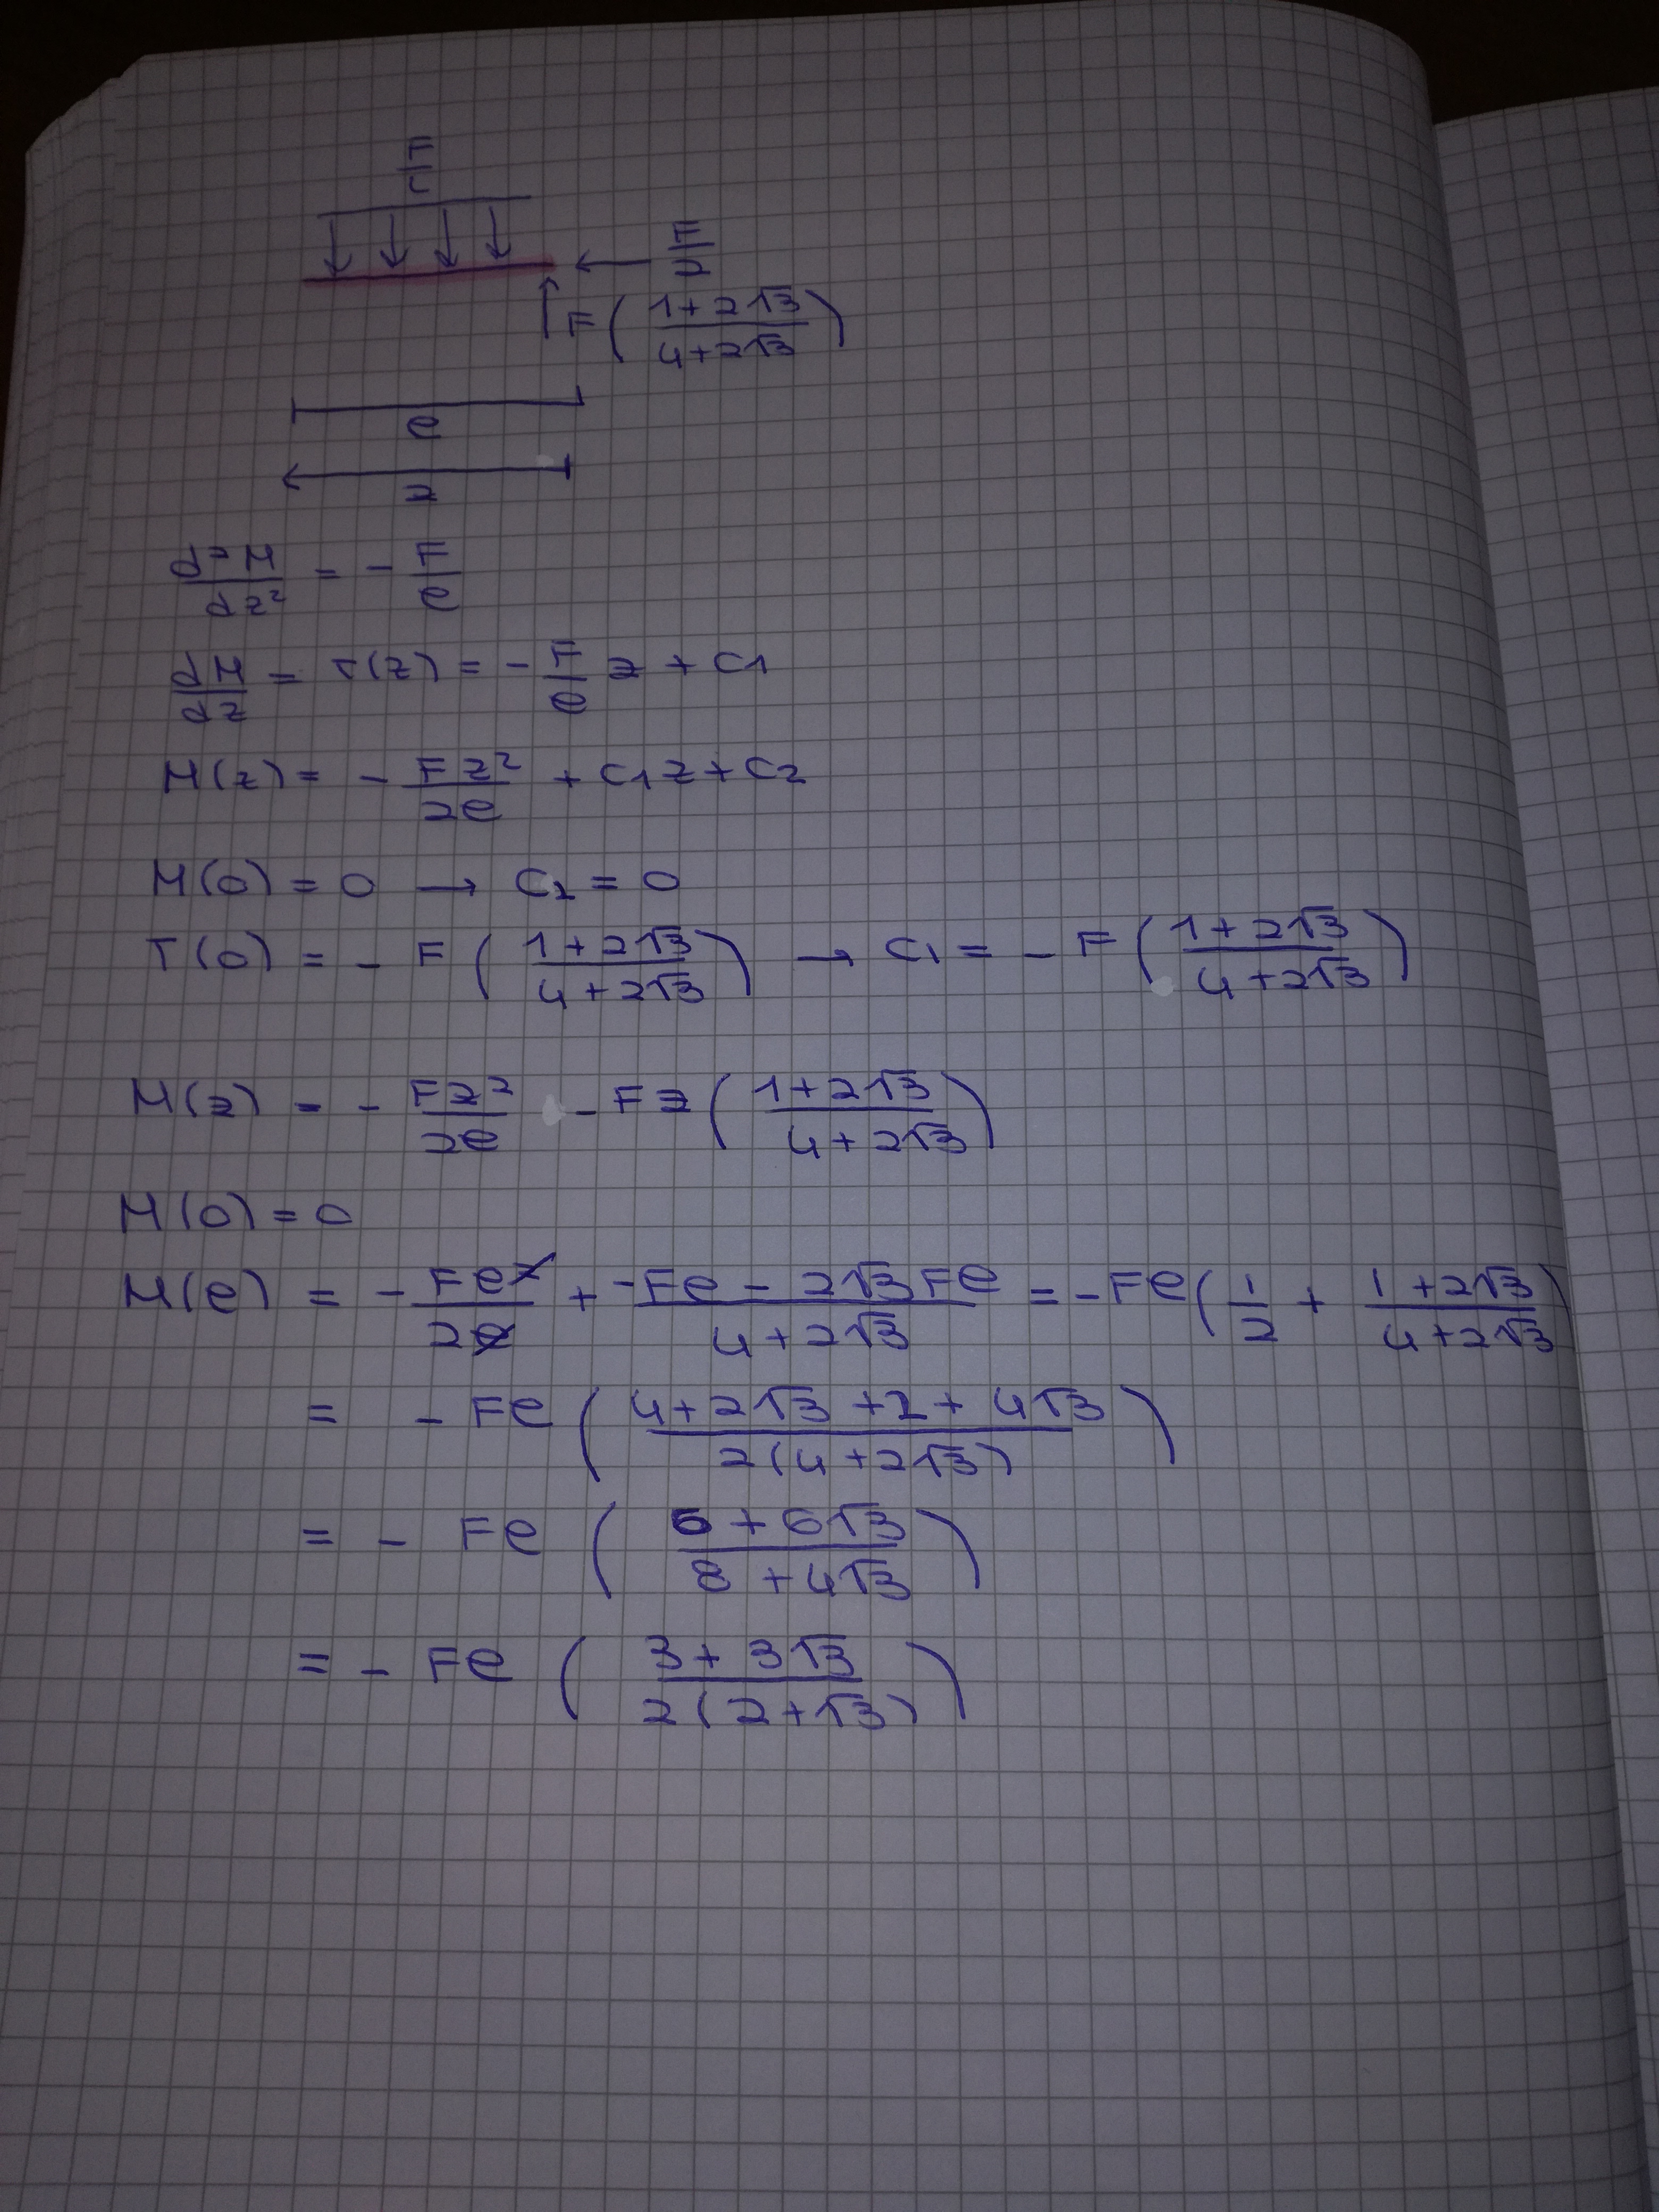 F/L
F/2
F ( (1+2√3)/(4+2√3) )
e
z
d²M/dz² = - F/e
dM/dz = T(z) = - F/e z + C1
M(z) = - Fz²/2e + C1z + C2
M(0) = 0 → C2 = 0
T(0) = - F ( (1+2√3)/(4+2√3) ) → C1 = - F ( (1+2√3)/(4+2√3) )
M(z) = - Fz²/2e - Fz ( (1+2√3)/(4+2√3) )
M(0) = 0
M(e) = - Fe²/2e + (-Fe - 2√3Fe)/(4+2√3) = - Fe ( 1/2 + (1+2√3)/(4+2√3) )
= - Fe ( (4+2√3+2+4√3)/(2(4+2√3)) )
= - Fe ( (6+6√3)/(8+4√3) )
= - Fe ( (3+3√3)/(2(2+√3)) )